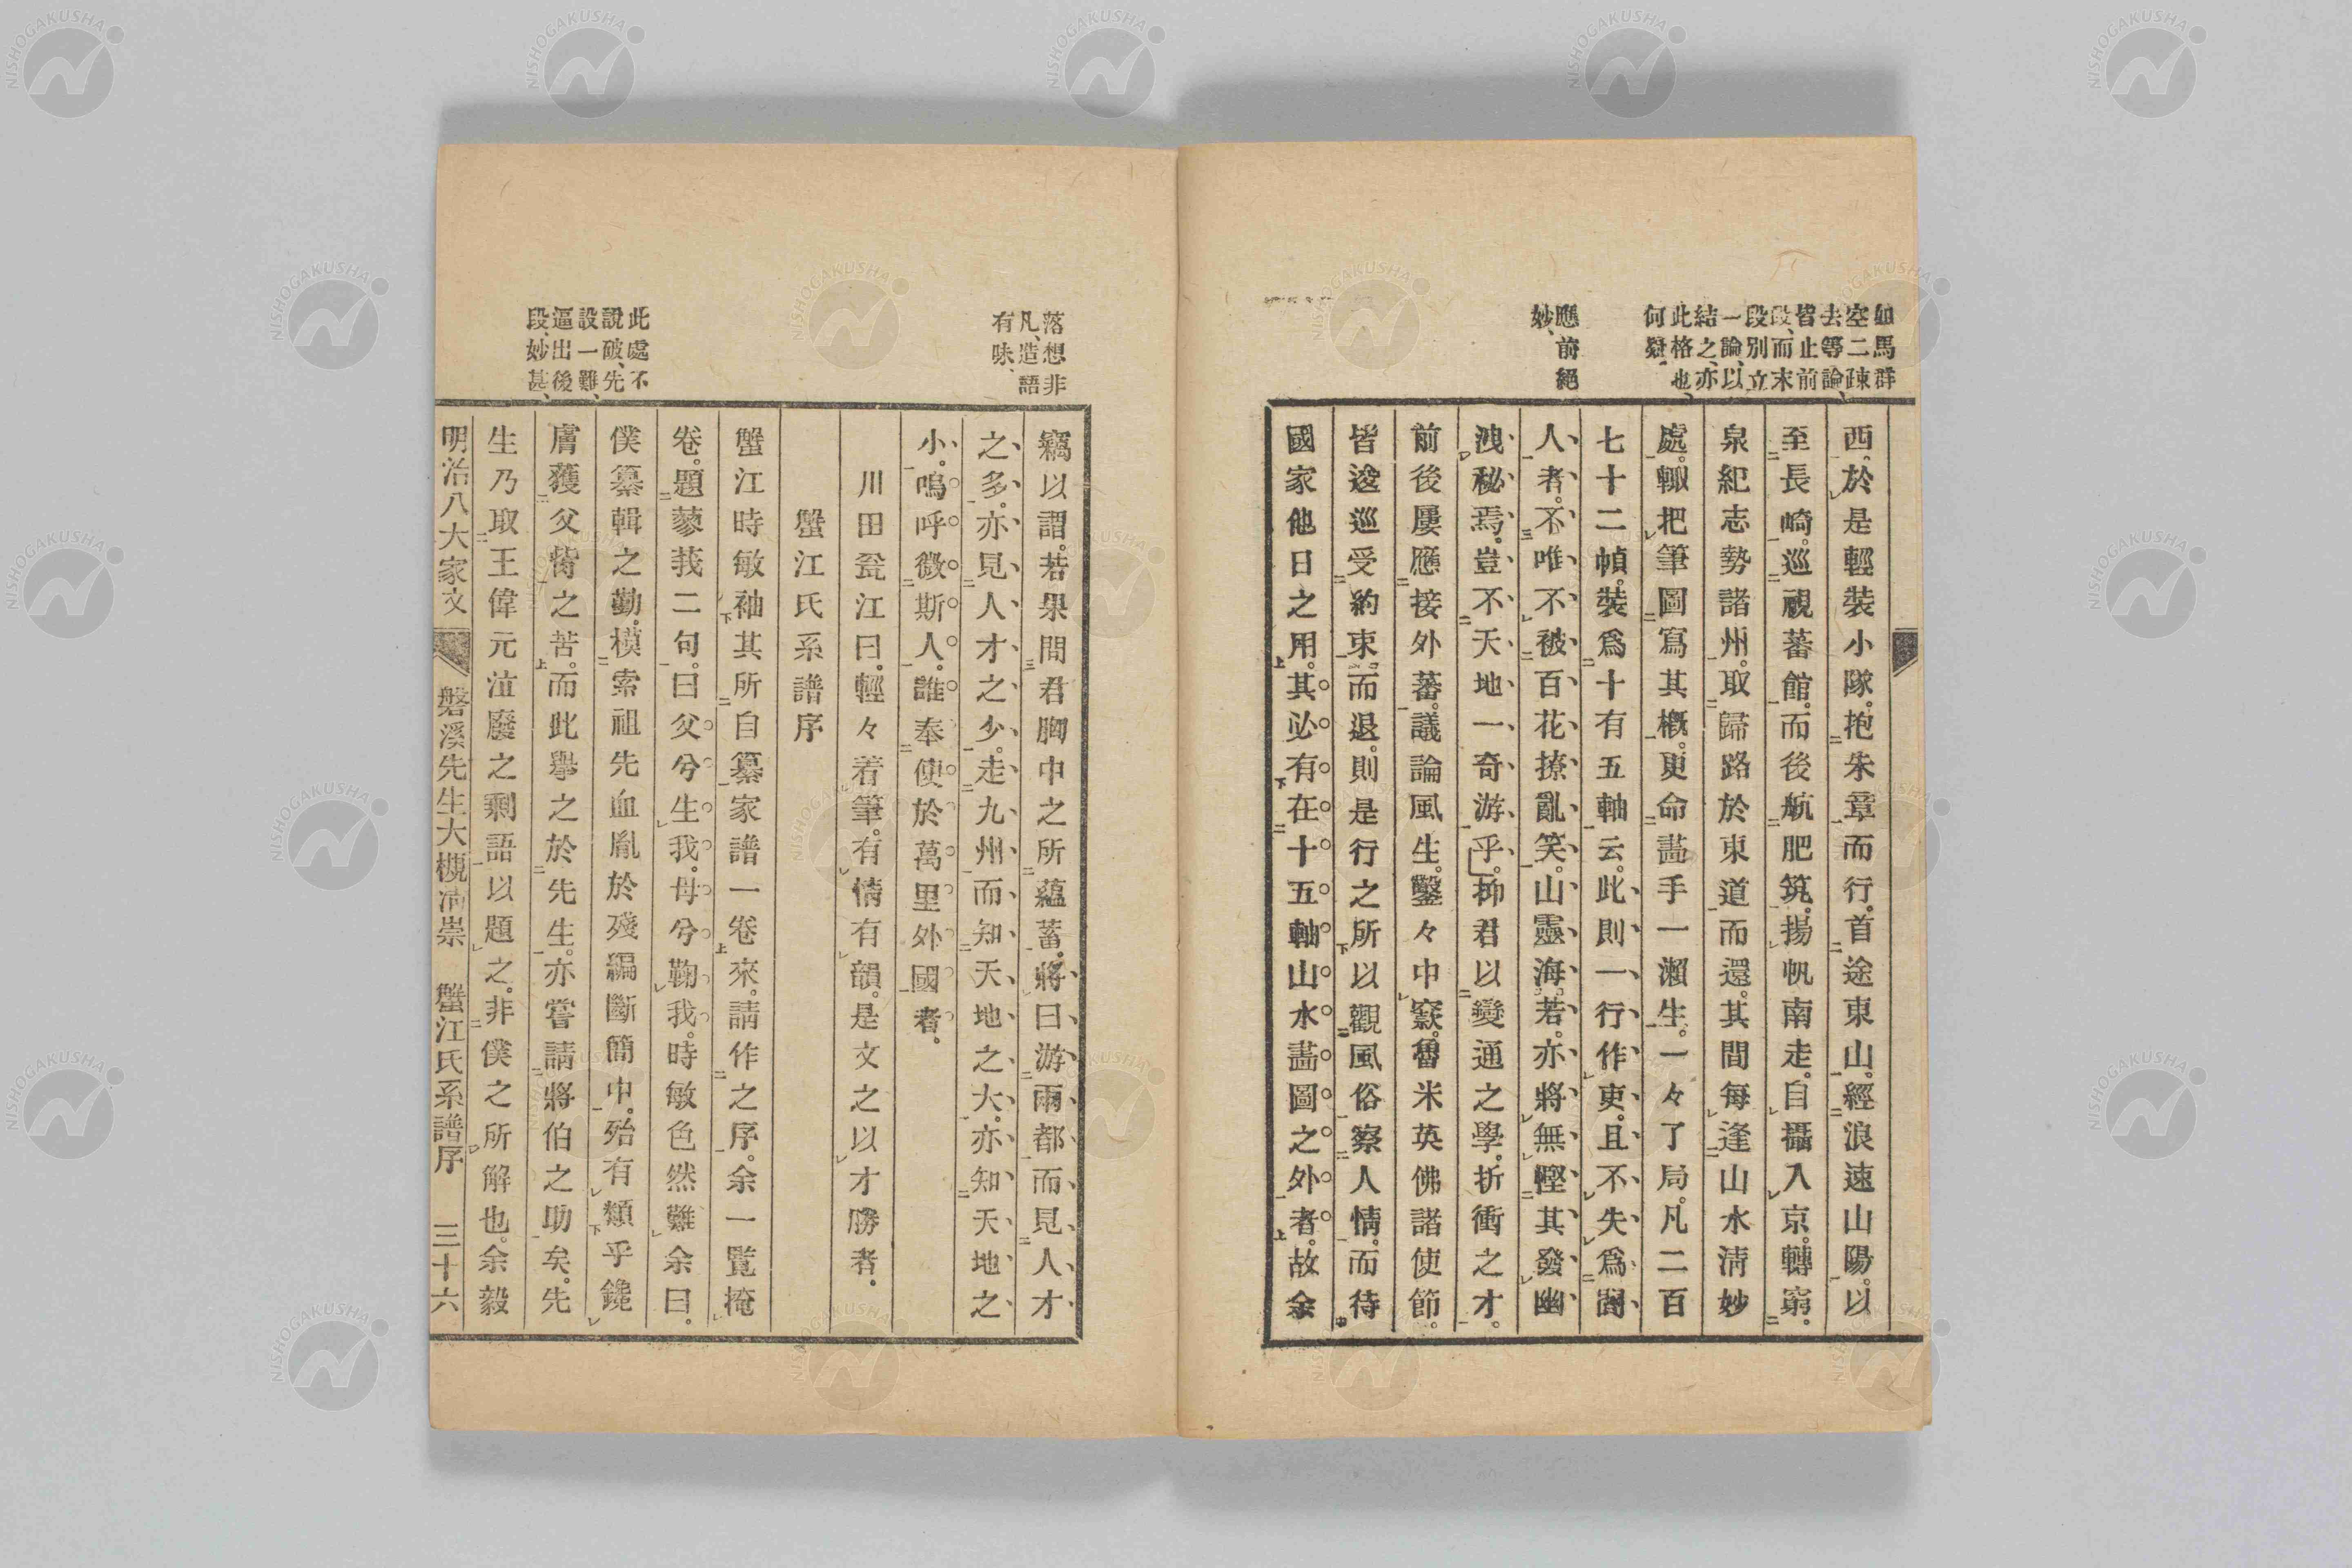 如馬群
空二疎
去等論、
皆止前
段、而末
段別立
一論、以
結之、亦
此格也、
何疑、
應前絕
妙、
西。於是輕裝小隊。抱朱章而行。首途東山。經浪速山陽。以
至長崎。巡視蕃館。而後航肥筑。揚帆南走。自攝入京。轉窮。
泉紀志勢諸州。取歸路於東道而還。其間每逢山水淸妙
處。輙把筆圖寫其概。更命畵手一瀨生。一々了局。凡二百
七十二幀。裝爲十有五軸云。此則一行作吏。且不失爲閣
人者。不唯不被百花撩亂笑。山靈海若。亦將無慳其發幽
洩秘焉。豈不天地一奇游乎。抑君以變通之學。折衝之才。
前後屢應接外蕃。議論風生。鑿々中窾。魯米英佛諸使節。
皆逡巡受約束。而退。則是行之所以觀風俗察人情。而待
國家他日之用。其必有在十五軸山水畵圖之外者。故余
落想非
凡、造語
有味、
竊以謂。若果間君胸中之所蘊蓄。將曰游兩都而見人才
之多。亦見人才之少。走九州而知天地之大。亦知天地之
小。嗚呼微斯人。誰奉使於萬里外國者。
川田甕江曰。輕々着筆。有情有韻。是文之以才勝者。
蟹江氏系譜序
此處不
說破、先
設一難、
逼出後
段、妙甚、
蟹江時敏袖其所自纂家譜一卷來。請作之序。余一覧掩
卷。題蓼莪二句。曰父兮生我。母兮鞠我。時敏色然難余曰。
僕纂輯之勤。模索祖先血胤於殘編斷簡中。殆有類乎鑱
膚獲父胔之苦。而此擧之於先生。亦嘗請將伯之助矣。先
生乃取王偉元泣廢之剩語以題之。非僕之所解也。余毅
明治八大家文 磐溪先生大槻淸崇 蟹江氏系譜序 三十六
NISHOGAKUSHA